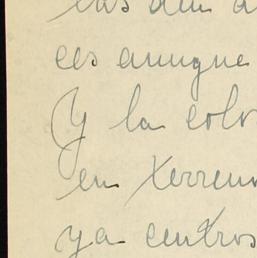 ces aunque
y la colo
en terren
ya centros